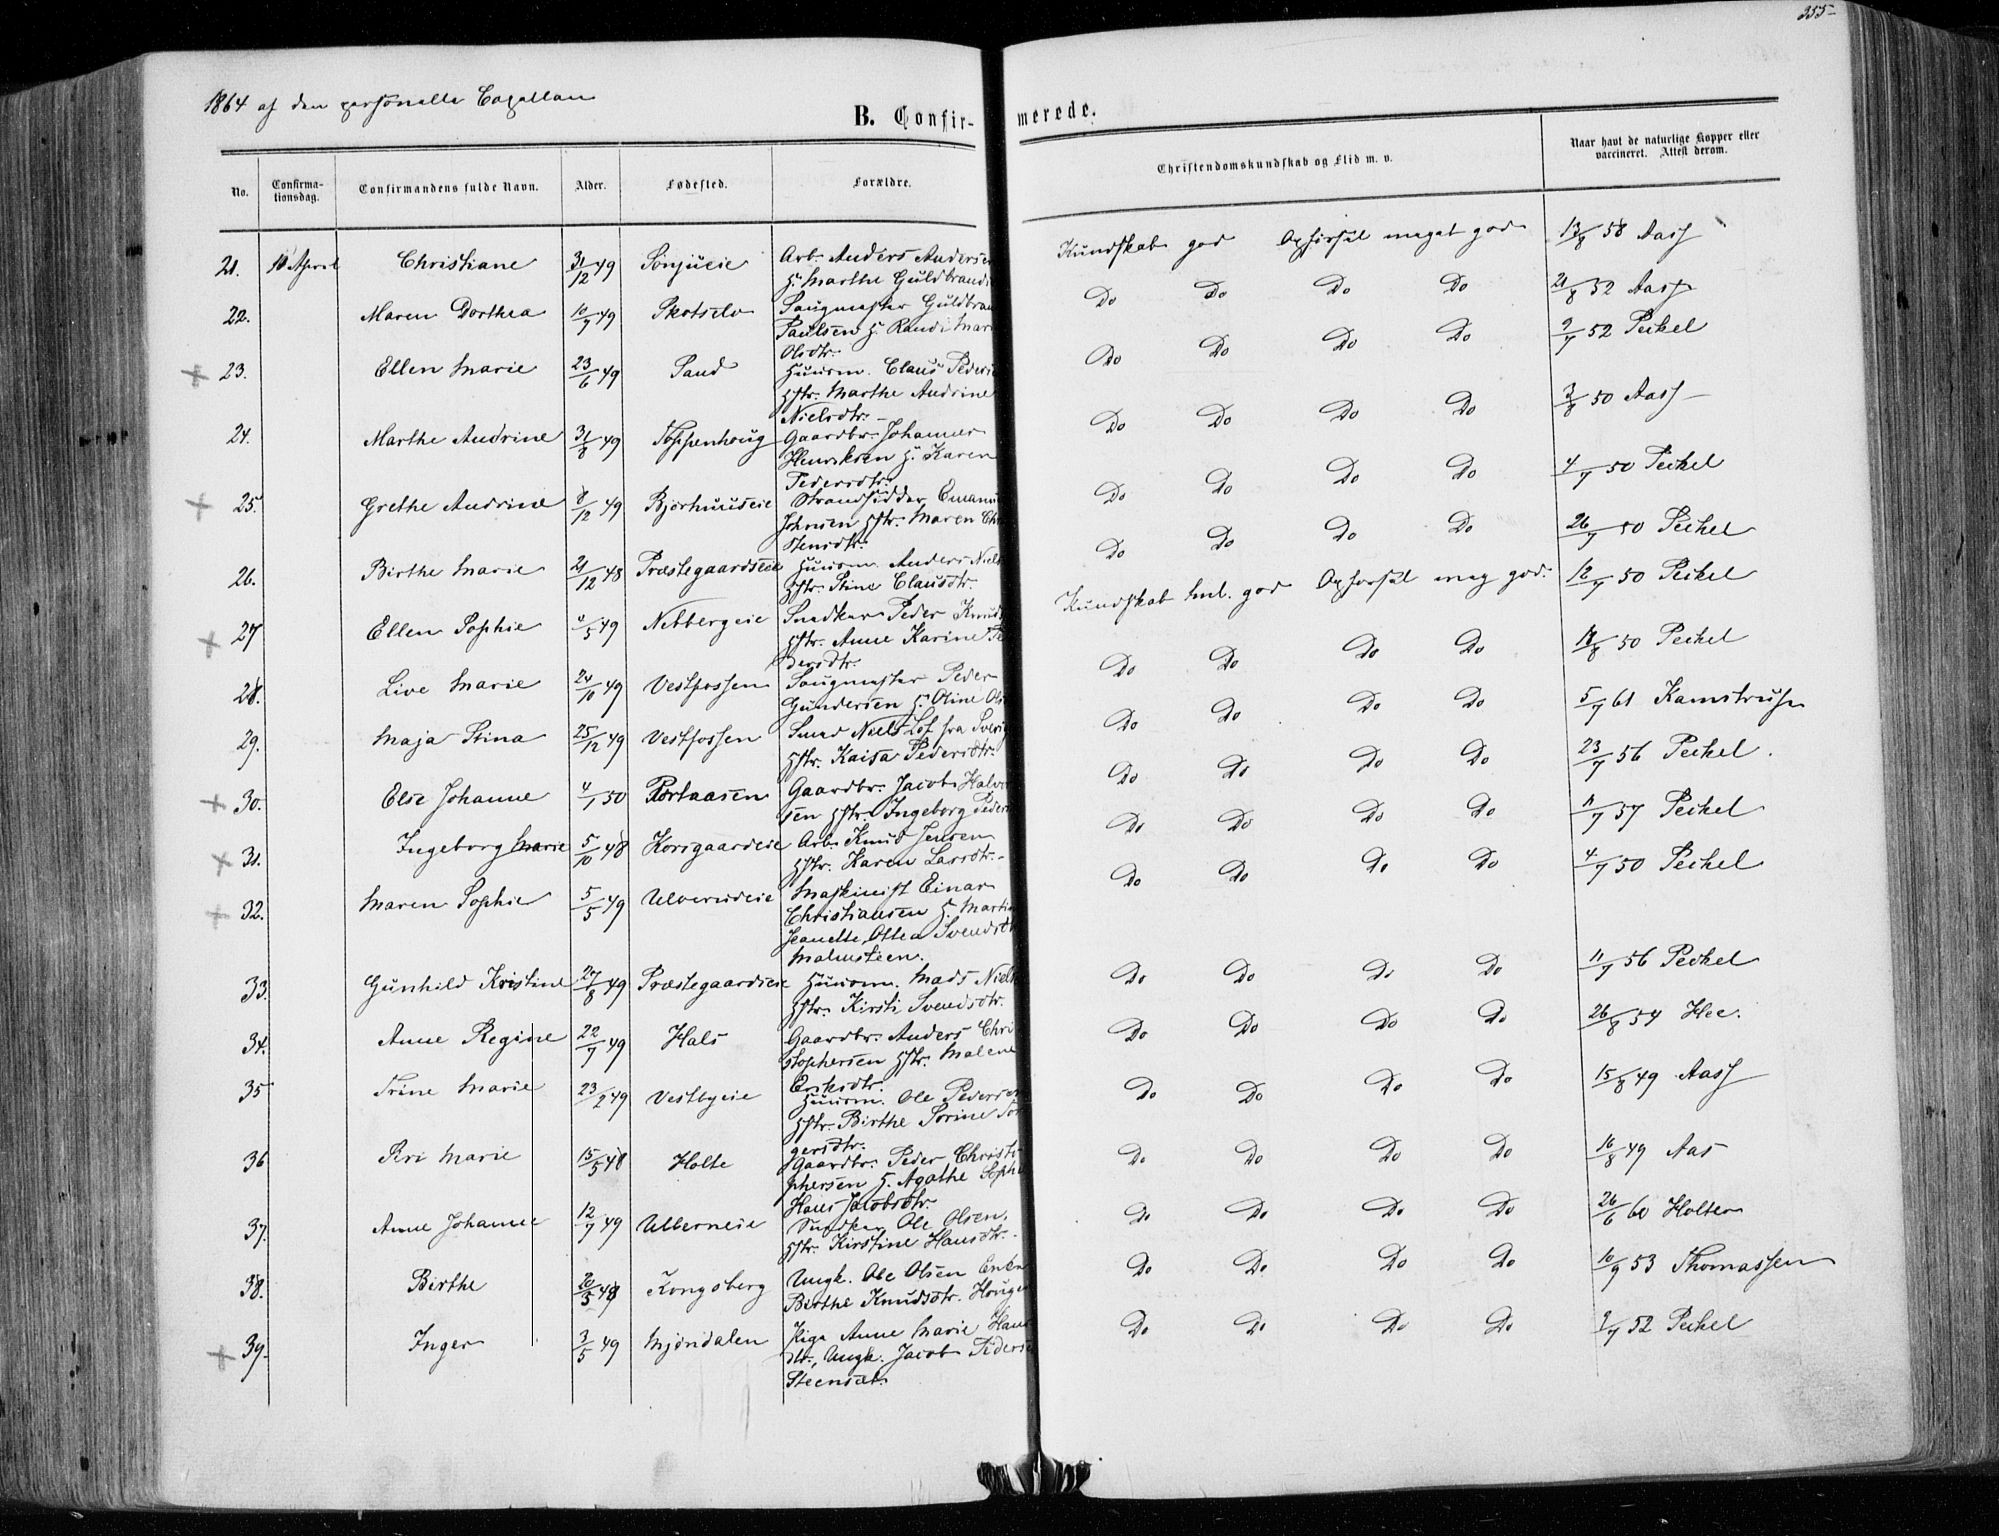 355
1864 af den personelle Capellan
B. Confirmerede.
No. Confirmationsdag. Confirmandens fulde Navn. Alder. Fødested. Forældre. Christendomskundskab og Flid m. v. Naar havt de naturlige Kopper eller vaccineret. Attest derom.
21. 10 April Christiane 31/12 49 Arb. Anders Andersen Kundskab god Opførsel meget god 13/8 58 Aass
& Marthe Guldbrands
22. Maren Dorthea 10/7 49 Skotselv Saugmester Guldbran Do Do Do Do 21/8 52 Aass
Paulsen & Randi Mari
Olsdtr.
23. Ellen Marie 23/6 49 Sand Huusm. Claus Peders Do Do Do Do 9/7 52 Peckel
Hstr. Marthe Andrine
Nielsdtr.
24. Marthe Andrine 31/8 49 Toppenhoug Gaardbr. Johannes Do Do Do Do 3/8 50 Aass
Henriksen & Karen
Pedersdtr.
25. Grethe Andrine 8/12 49 Bjørhuuseie Strandsidder Emanu Do Do Do Do 4/7 50 Peckel
Johnsen Hstr. Maren Chr
stensdtr.
26. Birthe Marie 21/12 48 Præstegaardseie Huusm. Anders Niels Do Do Do Do 26/7 50 Peckel
Hstr. Stine Clausdtr.
27 Ellen Sophie /5 49 Nebbergeie Snedker Peder Knud Kundskab tml. god Opførsel meg god. 12/7 50 Peckel
Hstr. Anne Karine Pe
dersdtr.
28. Live Marie 24/10 49 Vestfossen Saugmester Peder Do Do Do Do 18/8 50 Peckel
Gundersen & Oline Ols
29. Maja Stina 25/12 49 Vestfossen Smed Niels Løf fra Sverig Do Do Do Do 5/7 61 Kamstrup
Hstr. Kaisa Pedersdtr.
30. Else Johanne 4/1 50 Portaasen Gaardbr. Jacob Halvor Do Do Do Do 23/7 56 Peckel.
sen Hstr. Ingeborg Peders
31. Ingeborg Marie 5/10 48 Korsgaardeie Arb. Knud Jensen Do Do Do Do 11/7 57 Peckel
Hstr. Karen Larsdtr.
32. Maren Sophie 5/5 49 Ulverudeie Maskinist Einar Do Do Do Do 4/7 50 Peckel
Christiansen & Martia
Jeanette Ottea Svendsdtr
Malmsteen.
33. Gunhild Kristine 27/8 49 Præstegaardseie Huusm. Mads Niels Do Do Do Do 11/7 56 Peckel
Hstr. Kirsti Svendsdtr.
34. Anne Regine 22/7 49 Hals Gaardbr. Anders Chri Do Do Do Do 26/8 54 Hee.
stophersen Hstr. Malene
Eriksdtr.
35 Trine Marie 23/2 49 Vestbyeie Huusm. Ole Pedersen Do Do Do Do 15/8 49 Aass
Hstr. Birthe Sorine Tor
gersdtr.
36 Siri Marie 15/5 48 Holte Gaardbr. Peder Christo Do Do Do Do 16/8 49 Aas
phersen & Agathe Sophi
Hans Jacobsdtr.
37. Anne Johanne 12/7 49 Ulverneie Snedker Ole Olsen. Do Do Do Do 26/6 60 Holter
Hstr. Kirstine Hansdtr.
38. Birthe 20/5 48 Kongsberg Ungk. Ole Olsen Enke Do Do Do Do 10/9 53 Thomassen
Birthe Knudsdtr. Houge
39. Inger 3/5 49 Mjøndalen Pige Anne Marie Hans Do Do Do Do 2/7 52 Peckel
dtr., Ungk. Jacob Peders
Steensæt.